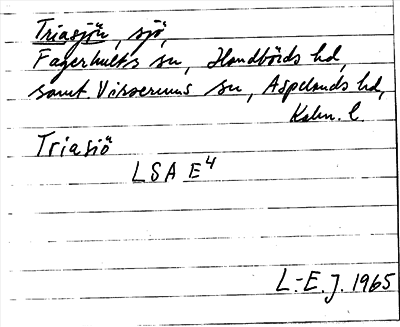 Triasjön, sjö,
Fagerhults sn, Handbörds hd,
samt Virserums sn, Aspelands hd,
Kalm. l.
Triasiö
LSA E4
L-E. J. 1965